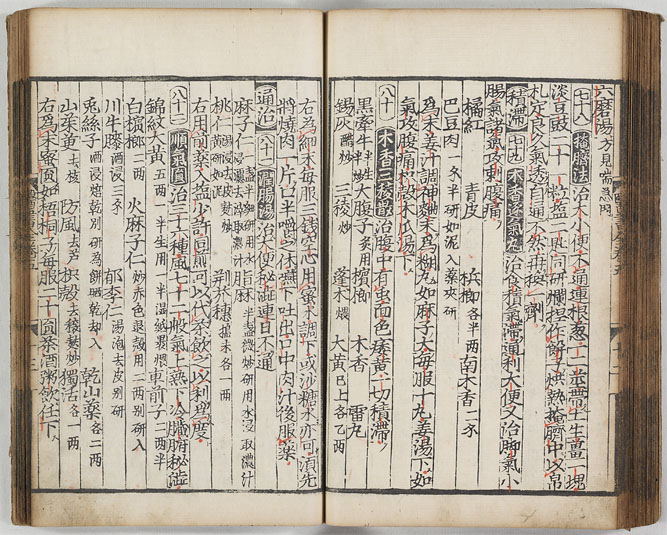 六磨湯方見喘急門
七十八 掩臍法 治大小便不通連根葱一二莖帶土生薑一塊
淡豆豉二十一粒盐二匙同研爛捏作餅子烘熱掩臍中以帛
札定良久氣透自通不然再換一劑
積滯 七十九 木香逐氣丸 治食積氣滯通利大便又治脚氣小
腸氣諸氣攻刺腹痛
橘紅 青皮 檳榔各半兩 南木香二錢
巴豆肉一錢半研如泥入藥夾研
為末姜汁調神麯末為糊丸如麻子大每服十丸姜湯下如
氣攻腹痛枳殼木瓜湯下
八十 木香三稜散 治腹中有虫面色痿黄一切積滯
黒牽牛半生半炒 大腹子多用 檳榔 木香 雷丸
錫灰醋炒 三稜炒 蓬术煨 大黄已上各乙兩
右為細末每服三錢空心用蜜水調下或沙糖水亦可湏先
將燒肉一片口半嚼之休嚥下吐出口中肉汁後服藥
通治 八十一 潤腸湯 治大便秘澁連日不通
麻子仁一盞半細研用水浸取濃汁 脂麻半盞微炒研用水浸取濃汁
桃仁湯浸去皮麩炒研如泥 荆芥穗搗末各一兩
右用前藥入盐少許同煎可以代茶飲之以利為度
八十二 順氣圓 治三十種風七十二般氣上熱下冷臟腑秘澁
錦紋大黄五兩一半生用一半温紙裹煨 車前子二兩半
白檳榔二兩 火麻子仁炒赤色退殻用二兩别研入
川牛膝酒浸三錢 郁李仁湯泡去皮别研
兎絲子酒浸焙乾别研為餅晒乾却入 乾山藥各二兩
山茱萸去核 防風去芦 枳殻去穰麩炒 獨活各一兩
右為末蜜圓如梧桐子大每服二十圓茶酒粥飲任下